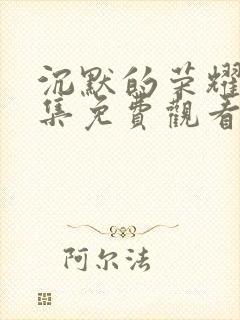 沉默的荣耀
集免費觀看
阿尔法